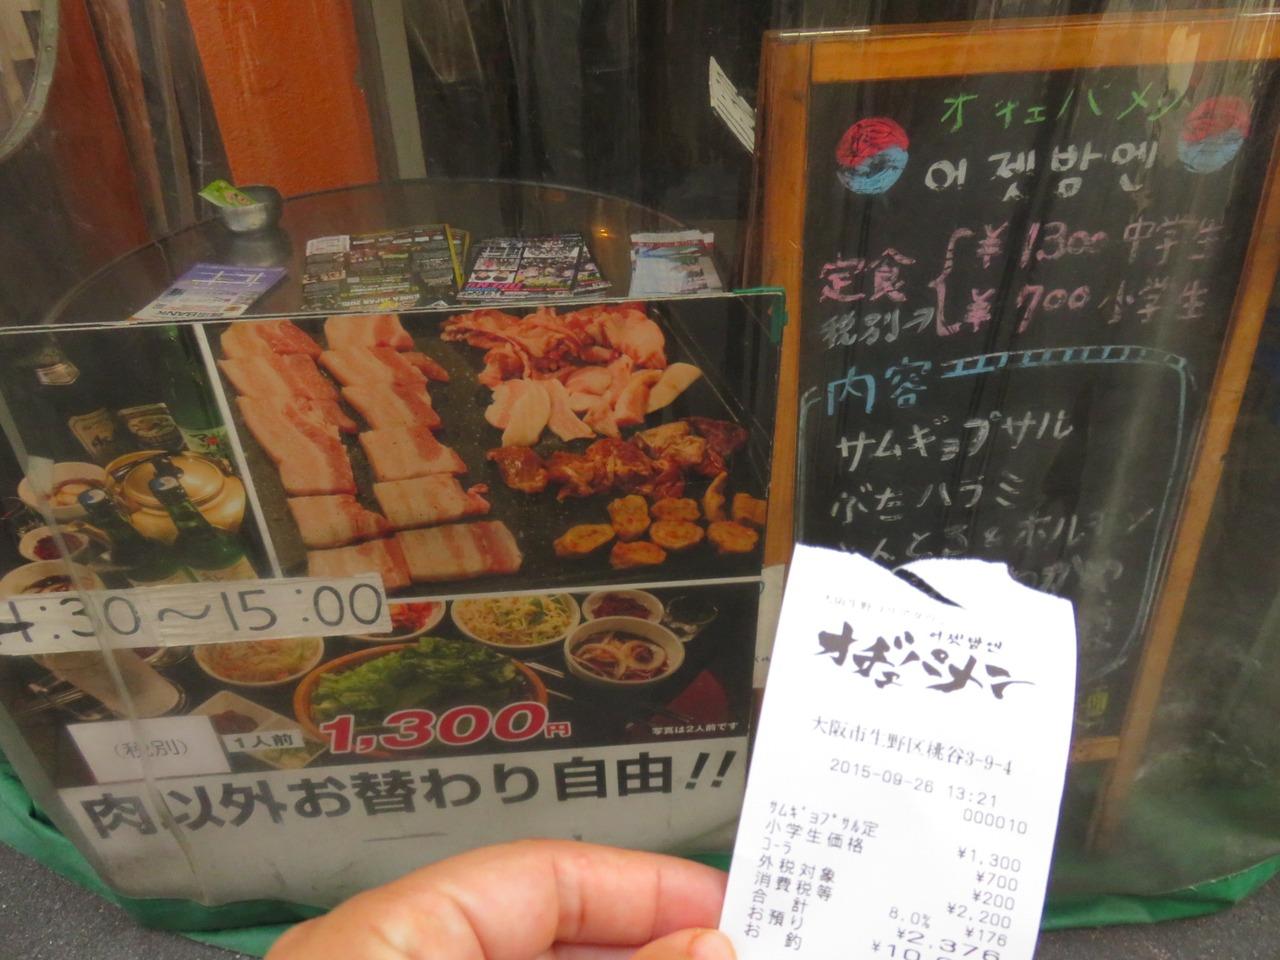 オギェバメン
어젯밤엔
定食
¥1300 中学生
¥700 小学生
税別→
内容
サムギョプサル
ぶたハラミ
ホルモン
:30～15:00
(税別)
1人前
1,300円
写真は2人前です
肉以外お替わり自由!!
어젯밤엔
オギェパメン
大阪市生野区桃谷3-9-4
2015-09-26 13:21
000010
ｻﾑｷﾞｮﾌﾟｻﾙ定 ¥1,300
小学生価格 ¥700
ｺｰﾗ ¥200
外税対象 ¥2,200
消費税等 8.0% ¥176
合計 ¥2,376
お預り
お釣